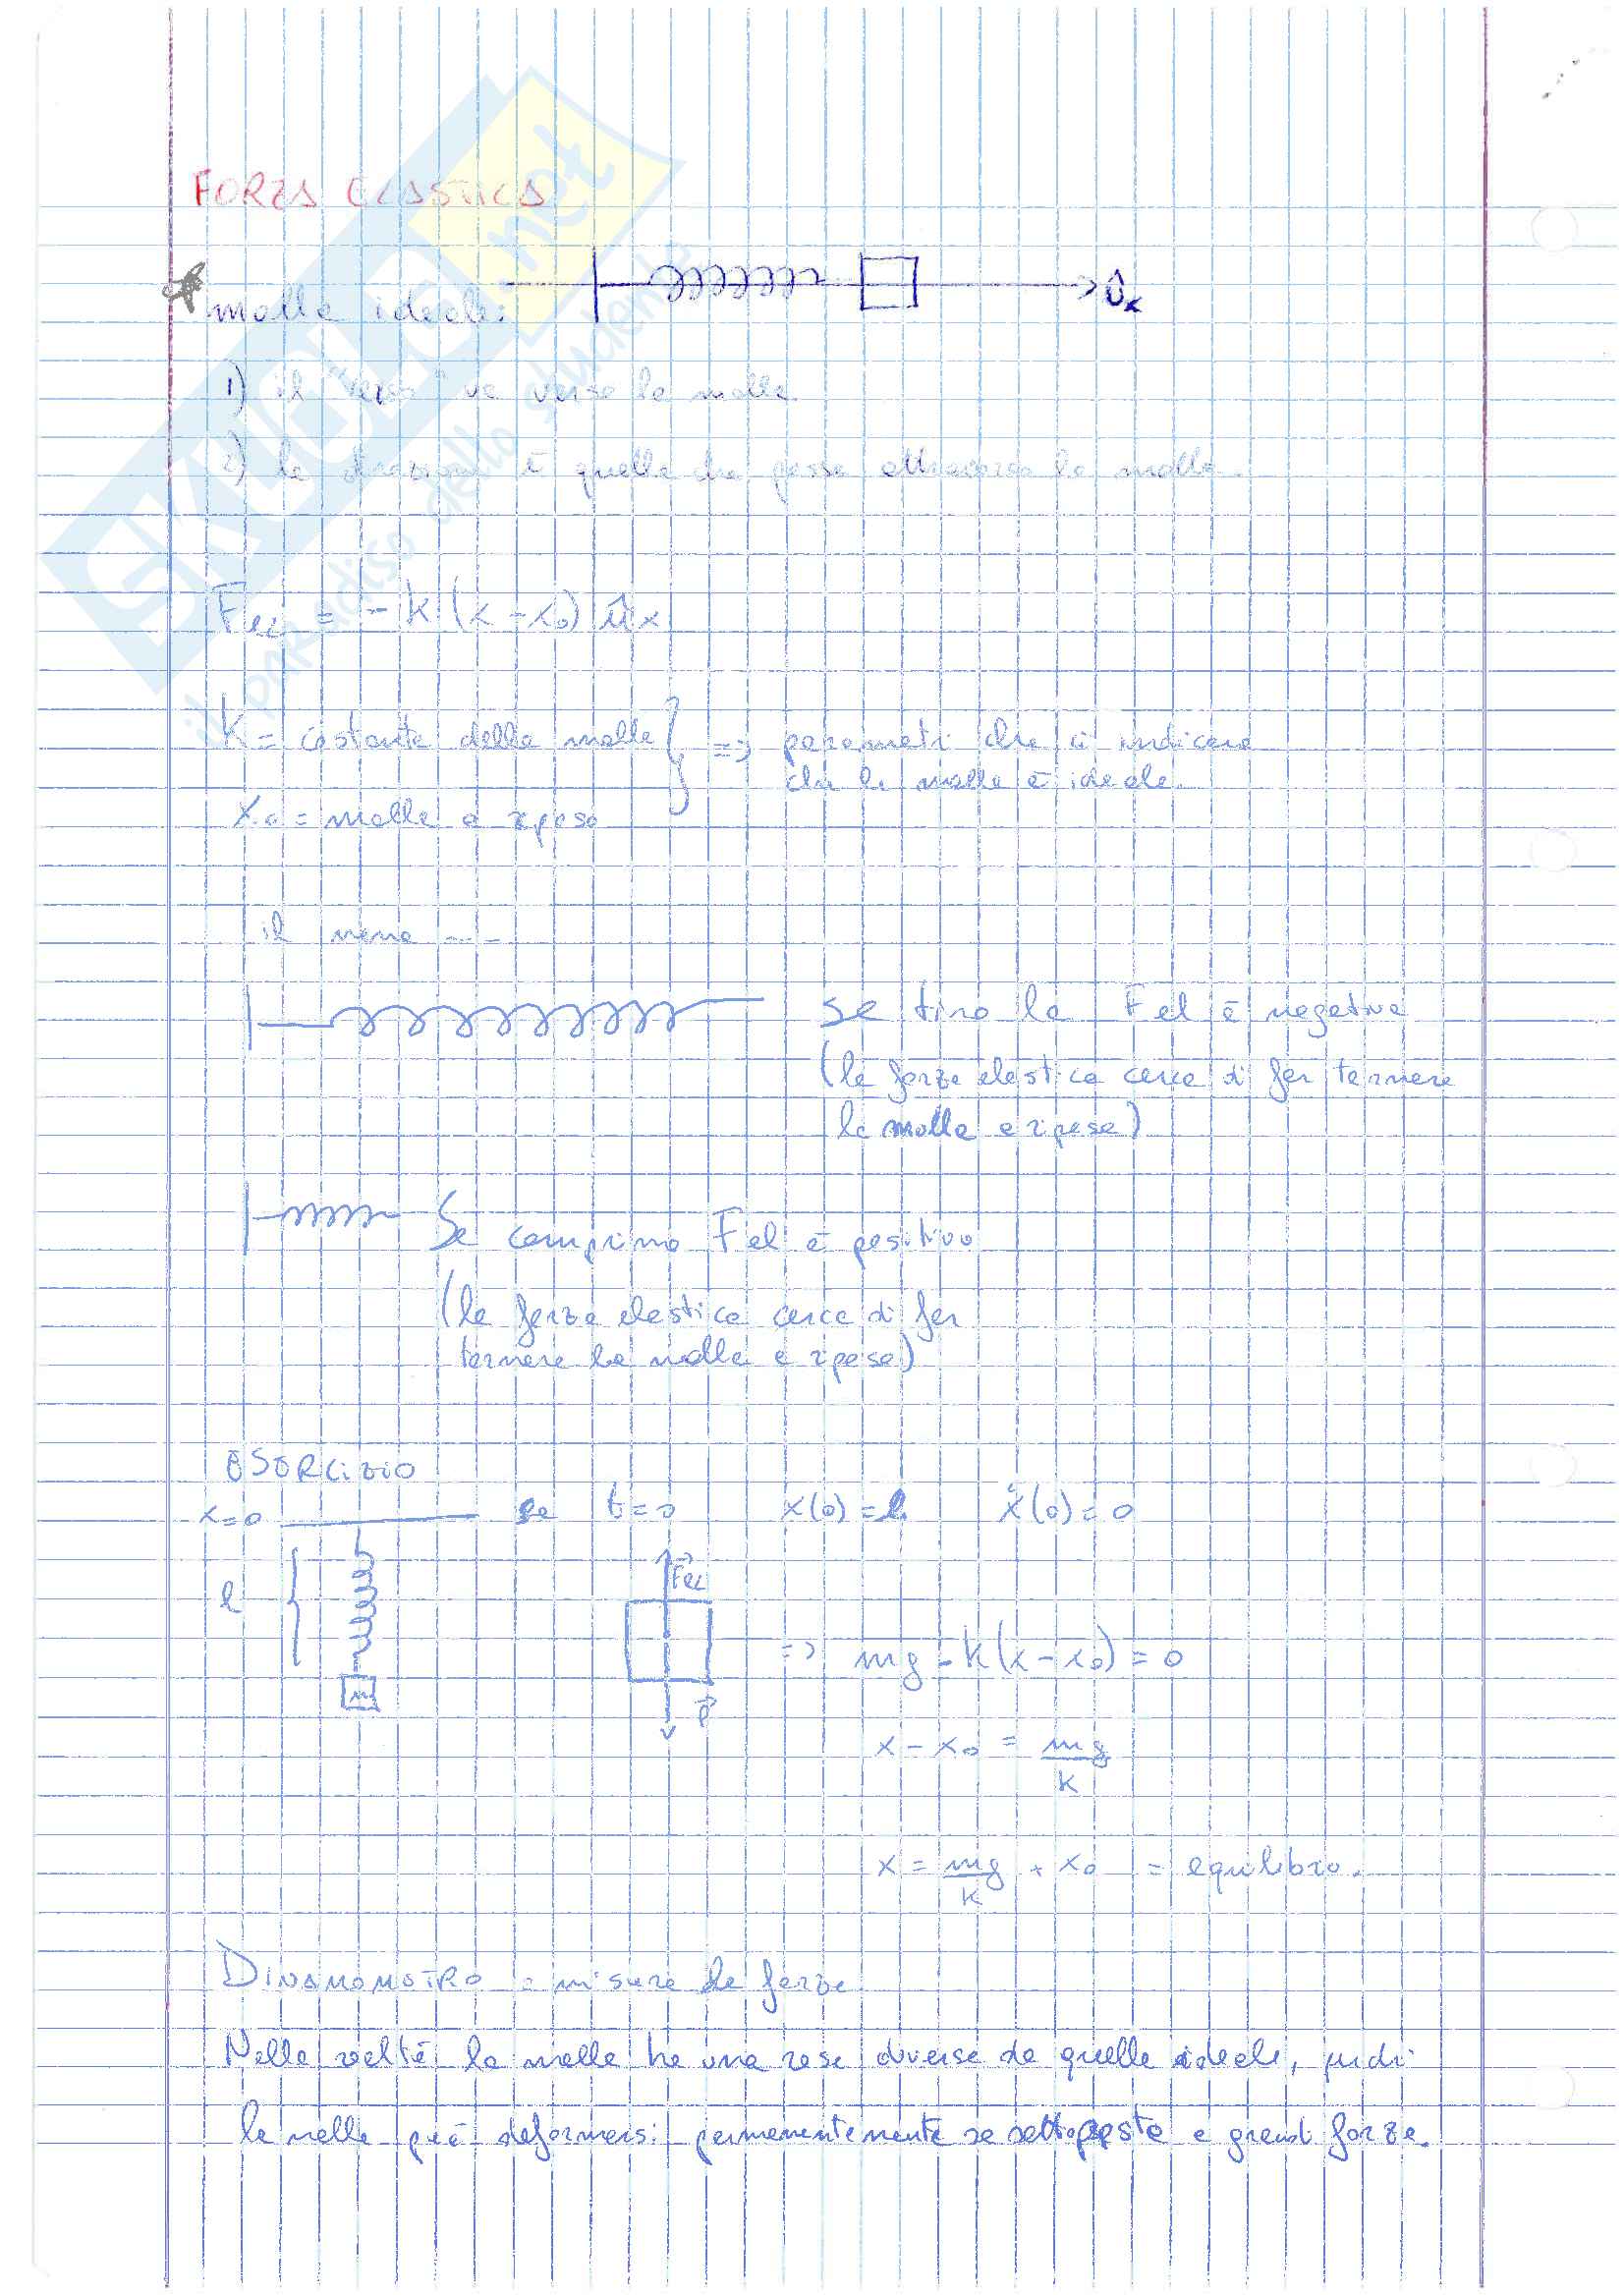 FORZA ELASTICA
molla ideale:
ûx
1) il "verso" va verso la molla.
2) la direzione è quella che passa attraverso la molla.
Fel = - k (x - x0) ûx
K = costante della molla } => parametri che ci indicano
che la molla è ideale.
x0 = molla a riposo
il meno ----
se tiro la Fel è negativa
(la forza elastica cerca di far tornare
la molla a riposo)
Se comprimo Fel è positivo
(la forza elastica cerca di far
tornare la molla a riposo)
ESERCIZIO
x=0 se t=0 x(0)=l ẋ(0)=0
Fel
l
=> mg - k(x - x0) = 0
m
P
x - x0 = mg/k
x = mg/k + x0 = equilibro.
DINAMOMETRO = misura la forza.
Nella realtà la molla ha una resa diversa da quella ideale,
la molla può deformarsi permanentemente se sottoposta a grandi forze.
SKUOLA.net
il paradiso dello studente